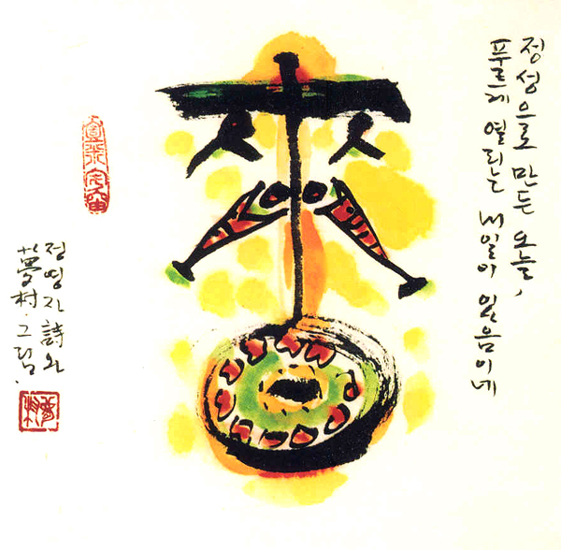 정성으로 만든 오늘,
푸르게 열리는 내일이 있음이네
詩와
夢村·그림.